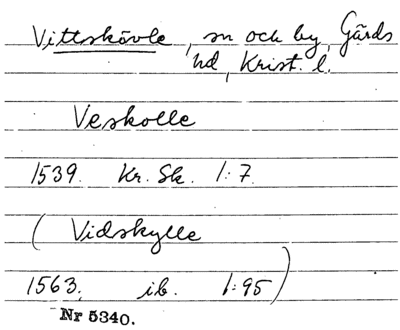 Vittskövle, sn och by, Gärds
hd, Krist. l.
Veskolle
1539. Kr. Sk. 1:7.
(Vidskylle
1563. ib. 1:95)
Nr 5340.